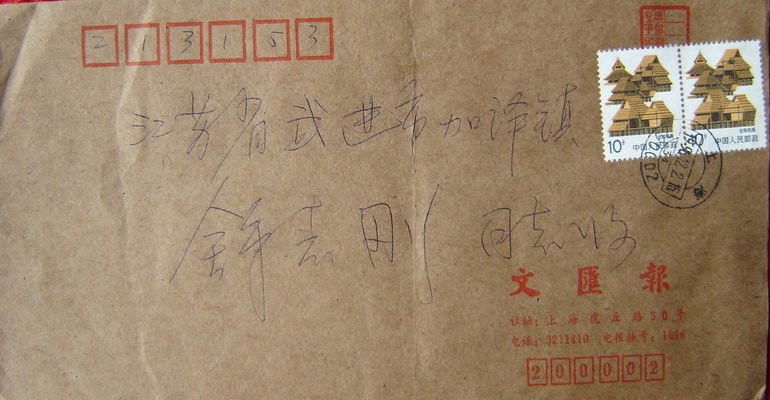 213153
江苏省武进市加泽镇
志刚 同志收
10分 中国人民邮政
中国人民邮政
上海
文匯報
社址：上海虎丘路50号
电话：3211410 电报挂号：1698
200002